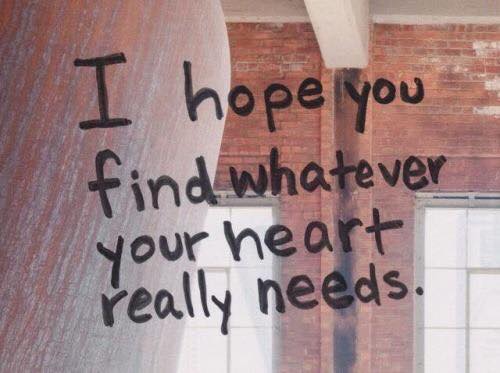 I hope you
find whatever
your heart
really needs.